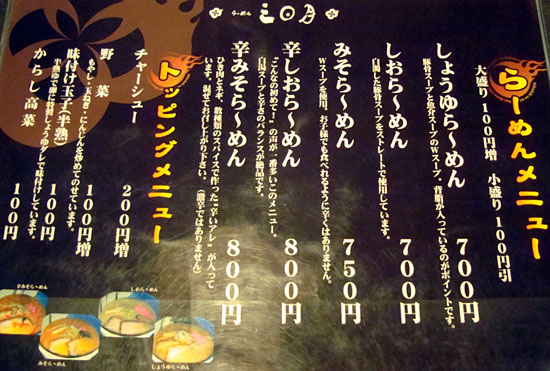 らーめん
らーめんメニュー
大盛り100円増 小盛り100円引
しょうゆら〜めん 700円
豚骨スープと魚介スープのWスープ。背脂が入っているのがポイントです。
しおら〜めん 700円
白濁した豚骨スープをストレートで使用しています。
みそら〜めん 750円
Wスープを使用。お子様でも食べれるように辛くはありません。
辛しおら〜めん 800円
“こんなの初めて！”の声が一番多いこのメニュー。
白濁スープと辛さのバランスが絶品です。
辛みそら〜めん 800円
ひき肉とネギ、数種類のスパイスで作った“辛いアレ”が入って
います。混ぜてお召し上がり下さい。（激辛ではありません）
トッピングメニュー
チャーシュー 200円増
野菜 100円増
もやし・玉ねぎ・にんじんを炒めてのせています。
味付け玉子（半熟） 100円
半熟ゆで卵に特製しょうゆダレで味付けしています。
からし高菜 100円
辛みそら〜めん
しおら〜めん
みそら〜めん
しょうゆら〜めん